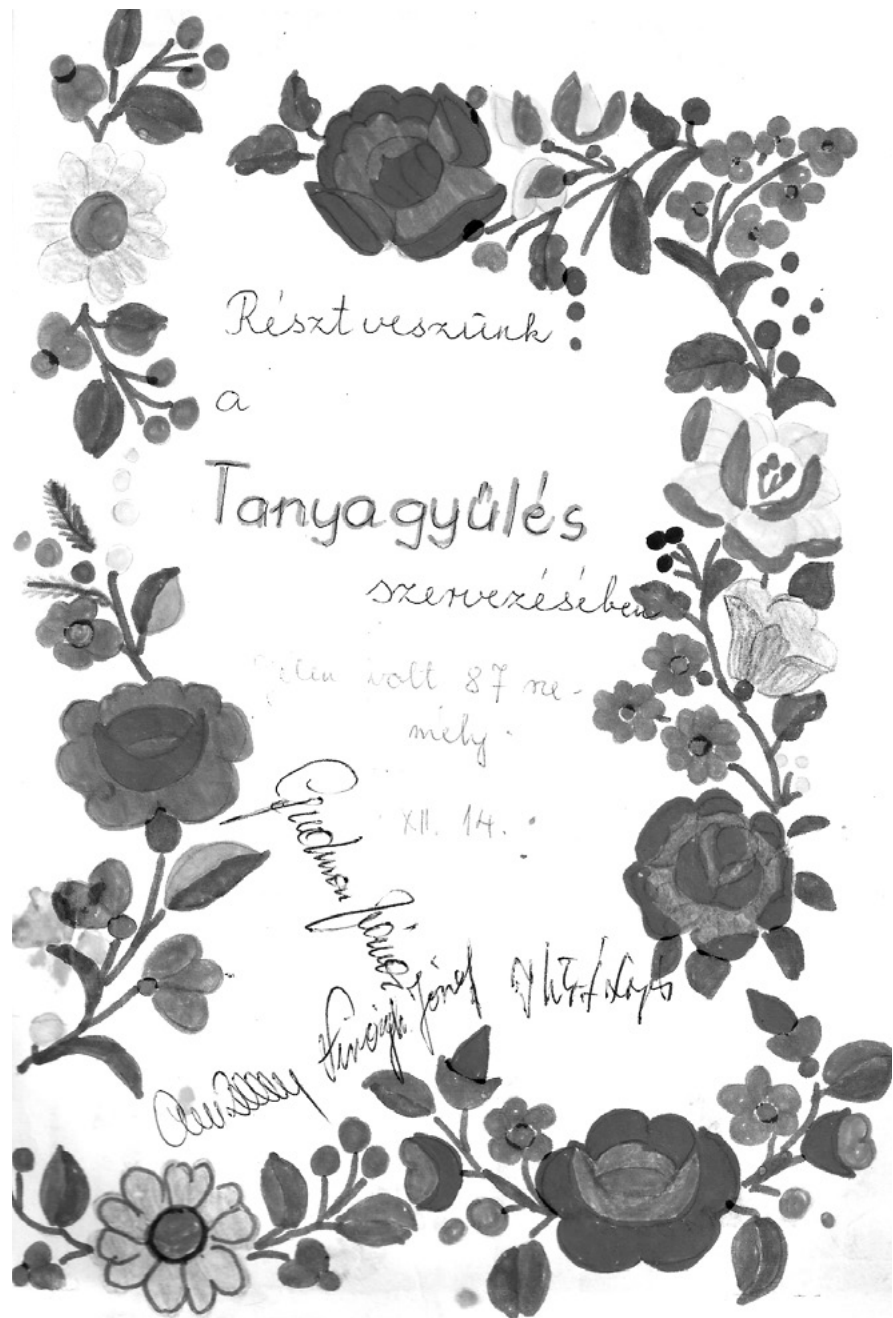 Résztveszünk
a
Tanyagyűlés
szervezésében
Jelen volt 87 sze-
mély.
XII. 14.
János
Virágh József